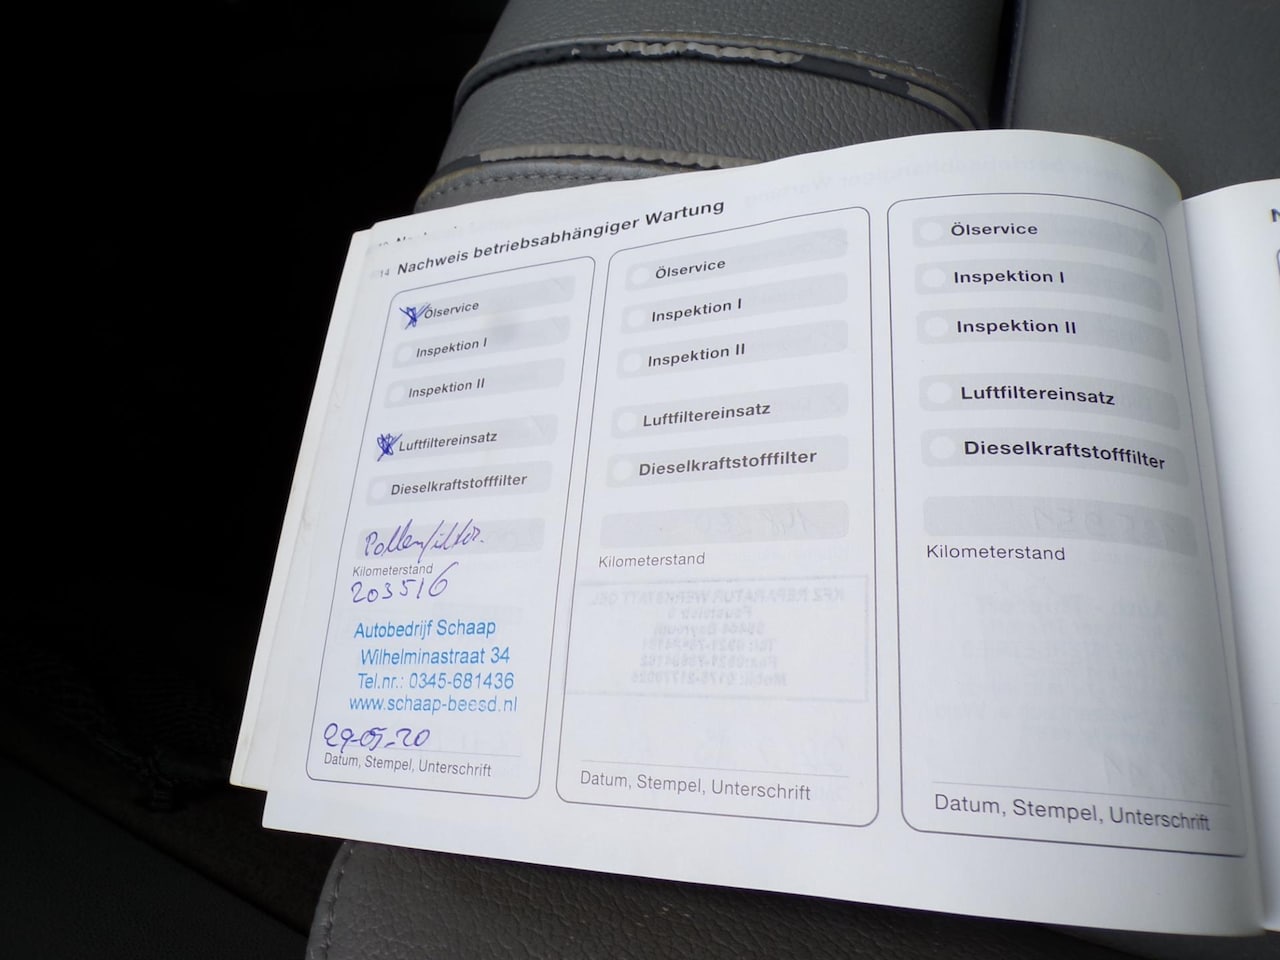 14 Nachweis betriebsabhängiger Wartung
Ölservice
Inspektion I
Inspektion II
Luftfiltereinsatz
Dieselkraftstofffilter
Pollenfilter.
Kilometerstand
203516
Autobedrijf Schaap
Wilhelminastraat 34
Tel.nr.: 0345-681436
www.schaap-beesd.nl
29-05-20
Datum, Stempel, Unterschrift
Ölservice
Inspektion I
Inspektion II
Luftfiltereinsatz
Dieselkraftstofffilter
Kilometerstand
Datum, Stempel, Unterschrift
Ölservice
Inspektion I
Inspektion II
Luftfiltereinsatz
Dieselkraftstofffilter
Kilometerstand
Datum, Stempel, Unterschrift